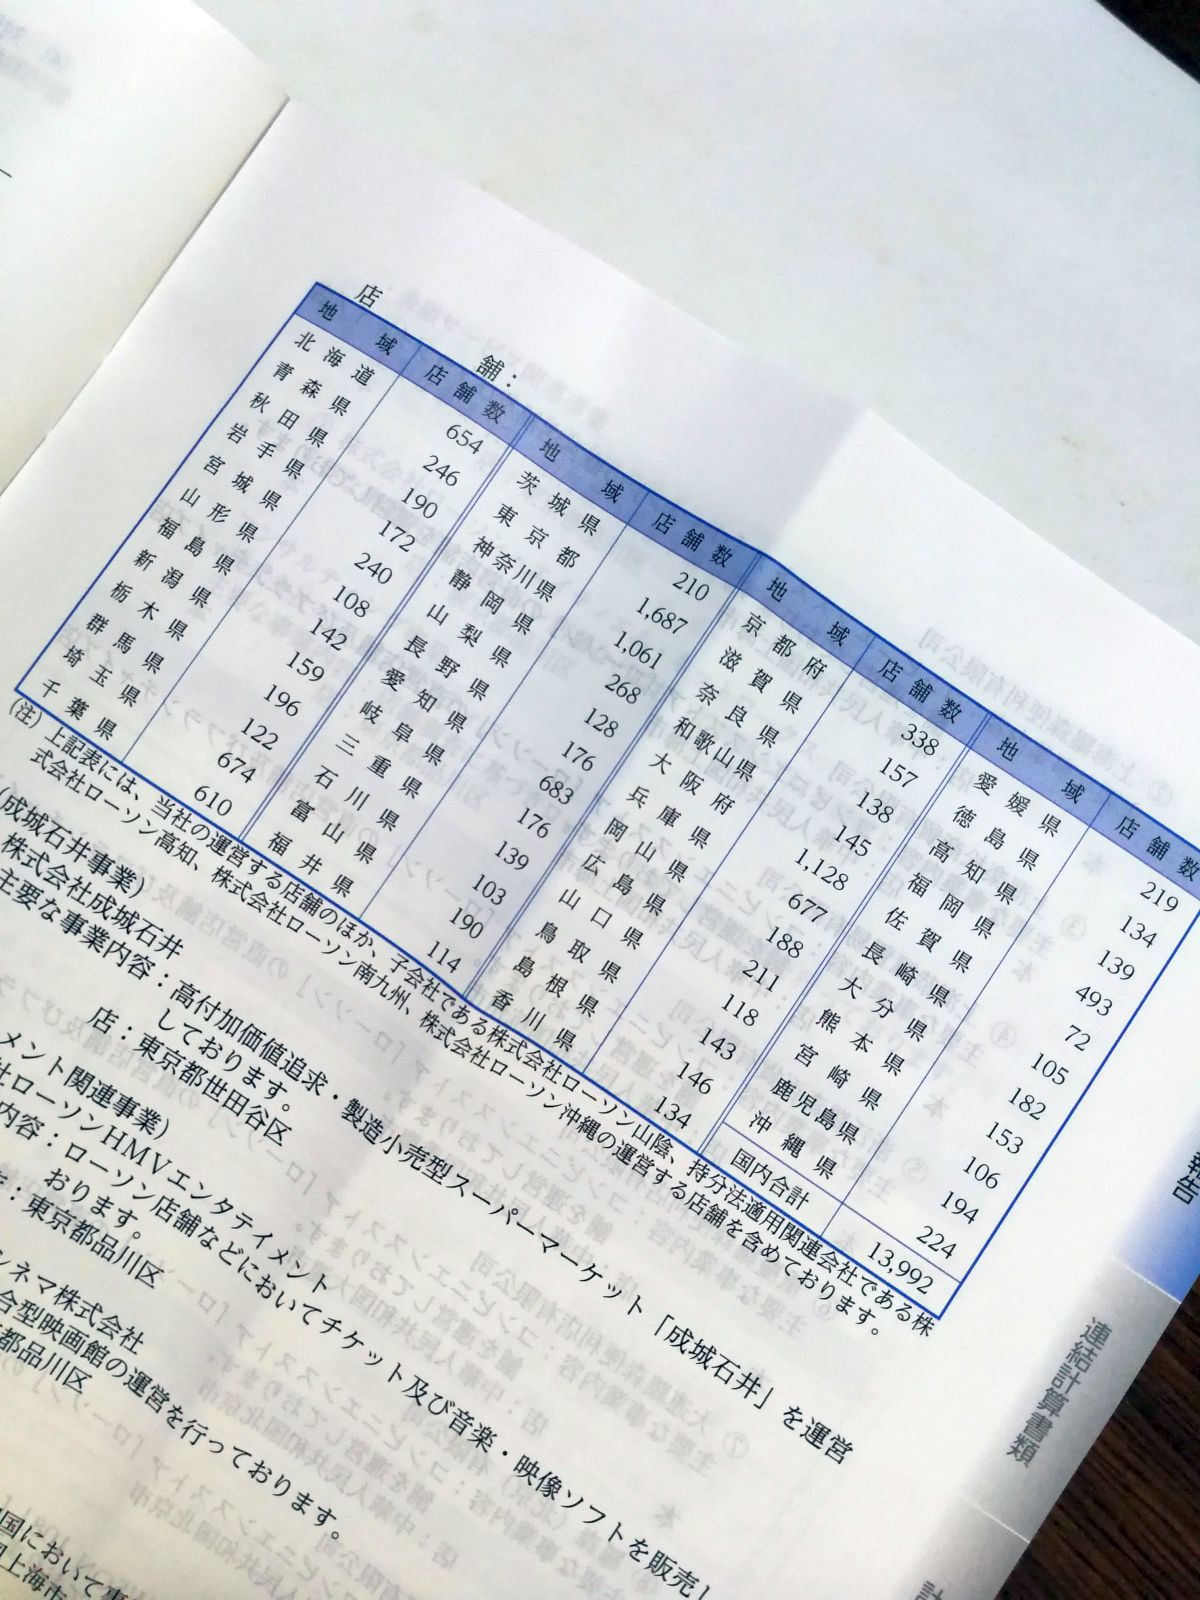 店　舗：
地域 店舗数 地域 店舗数 地域 店舗数 地域 店舗数
北海道 654 茨城県 210 京都府 338 愛媛県 219
青森県 246 東京都 1,687 滋賀県 157 徳島県 134
秋田県 190 神奈川県 1,061 奈良県 138 高知県 139
岩手県 172 静岡県 268 和歌山県 145 福岡県 493
宮城県 240 山梨県 128 大阪府 1,128 佐賀県 72
山形県 108 長野県 176 兵庫県 677 長崎県 105
福島県 142 愛知県 683 岡山県 188 大分県 182
新潟県 159 岐阜県 176 広島県 211 熊本県 153
栃木県 196 三重県 139 山口県 118 宮崎県 106
群馬県 122 石川県 103 鳥取県 143 鹿児島県 194
埼玉県 674 富山県 190 島根県 146 沖縄県 224
千葉県 610 福井県 114 香川県 134 国内合計 13,992
(注) 上記表には、当社の運営する店舗のほか、子会社である株式会社ローソン山陰、持分法適用関連会社である株
式会社ローソン高知、株式会社ローソン南九州、株式会社ローソン沖縄の運営する店舗を含めております。
(成城石井事業)
株式会社成城石井
主要な事業内容：高付加価値追求・製造小売型スーパーマーケット「成城石井」を運営
しております。
店：東京都世田谷区
メント関連事業)
社ローソンHMVエンタテイメント
内容：ローソン店舗などにおいてチケット及び音楽・映像ソフトを販売し
おります。
：東京都品川区
シネマ株式会社
合型映画館の運営を行っております。
都品川区
国において事
上海市
報告
連結計算書類
計